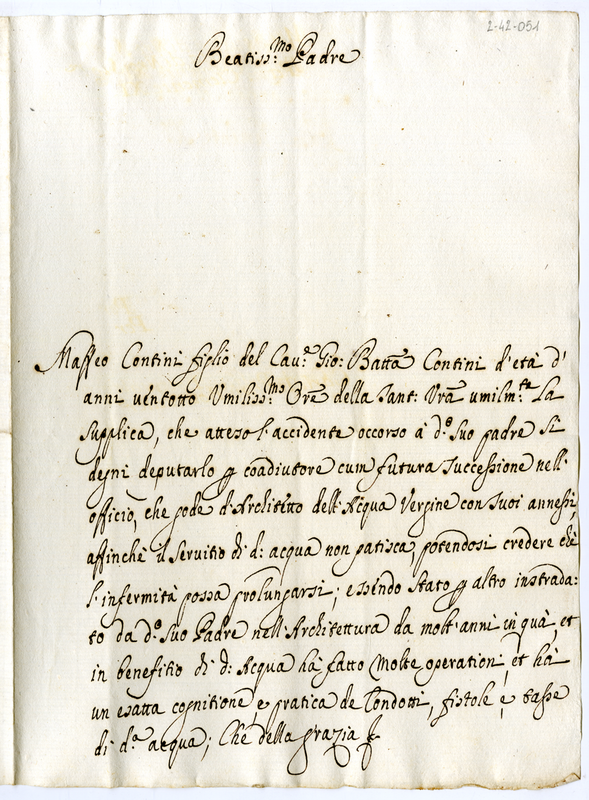 2-42-051
Beatiss:mo Padre
Maffeo Contini figlio del Cau:e Gio: Batta Contini d'età d'
anni ventotto Umiliss:mo Ore della Sant: Vra umilm:te La
supplica, che atteso l'accidente occorso à d:o suo padre si
degni deputarlo p coadiutore cum futura successione nell'
officio, che gode d'Architetto dell'Acqua Vergine con suoi annessi
affinchè il servitio di d: acqua non patisca, potendosi credere chè
l'infermità possa prolungarsi; essendo stato p altro instrada:
to da d:o suo Padre nell'Architettura da molt'anni in quà, et
in benefitio di d: Acqua hà fatto molte operationi, et hà
un esatta cognitione, e pratica de Condotti, fistole, e tasse
di d:a acqua; Che della grazia